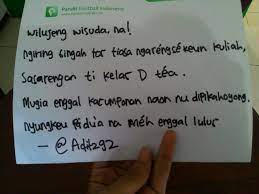 Pandit Football Indonesia
Wilujeng wisuda, na!
Ngiring bingah tos tiasa ngarengsékeun kuliah,
Sasarengan ti kelas D téa.
Mugia enggal katumponan naon nu dipikahoyong.
Nyungkeun ridua na méh enggal lulus
— @Adit292